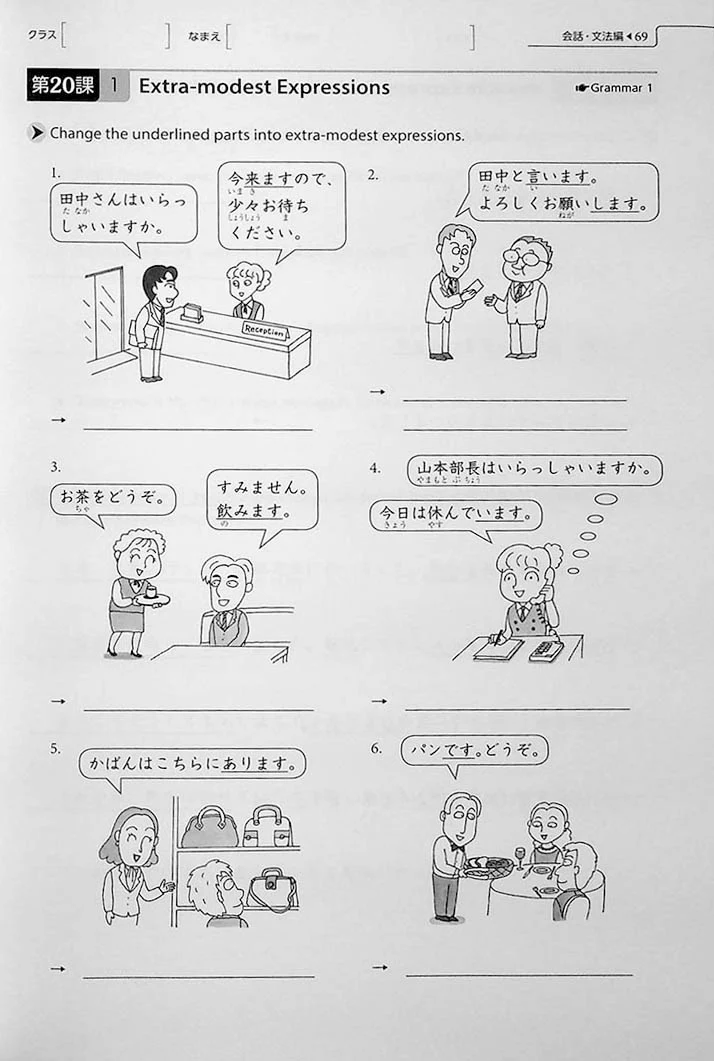 クラス[ ] なまえ[ ] 会話・文法編◀69
第20課 1 Extra-modest Expressions ☛Grammar 1
Change the underlined parts into extra-modest expressions.
1.
田中さんはいらっ
た なか
しゃいますか。
今来ますので、
いま き
少々お待ち
しょうしょう ま
ください。
Reception
→
2.
田中と言います。
た なか い
よろしくお願いします。
ねが
→
3.
お茶をどうぞ。
ちゃ
すみません。
飲みます。
の
→
4.
山本部長はいらっしゃいますか。
やまもと ぶ ちょう
今日は休んでいます。
きょう やす
→
5.
かばんはこちらにあります。
→
6.
パンです。どうぞ。
→